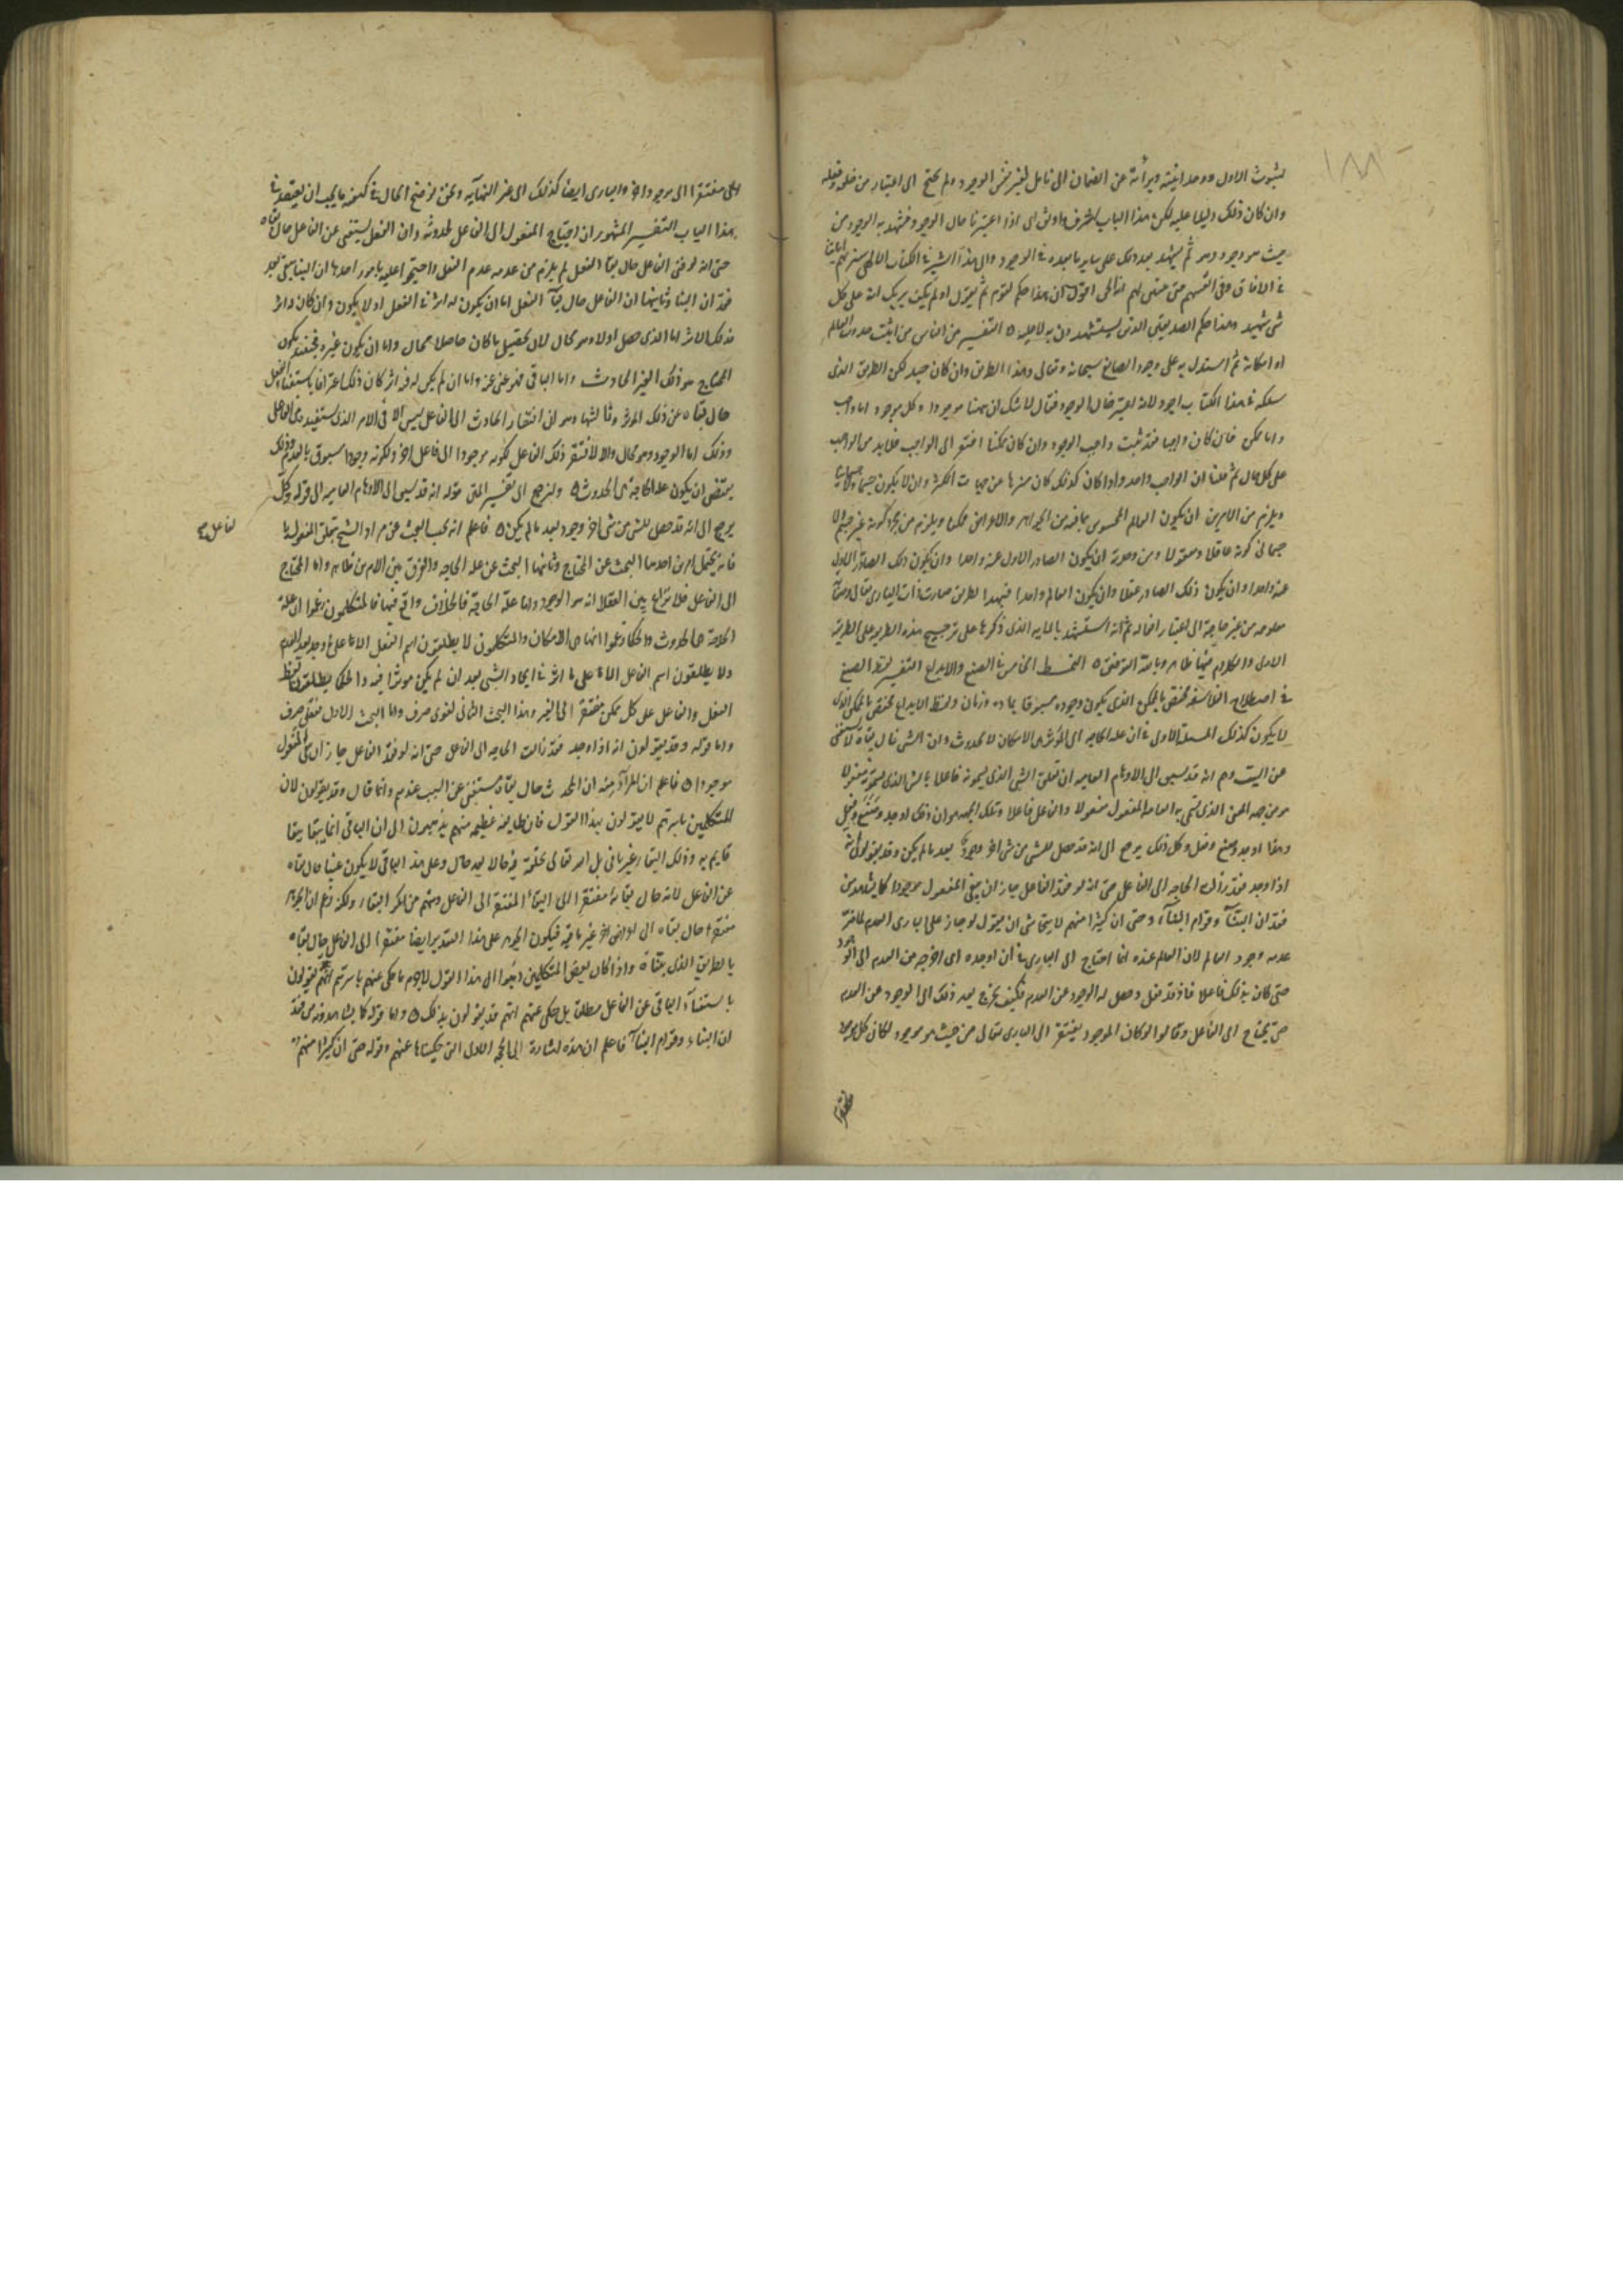 لثبوت الاول ووحدانيته وبرأته عن الصمات الى تامل لغير نفس الوجود ولم يحتج الى اعتبار من خلقه وفعله
وان كان ذلك دليلا عليه لكن هذا الباب اشرف واوثق اى اذا اعتبرنا حال الوجود فشهد به الوجود من
حيث هو وجود وهو ثم يشهد بعد ذلك على ساير ما بعده فى الوجود والى مثل هذا اشير فى الكتاب الالهى سنريهم اياتنا
فى الافاق وفى انفسهم حتى يتبين لهم انه الحق اقول ان هذا حكم لقوم ثم يقول اولم يكف بربك انه على كل
شى شهيد وهذا حكم الصديقين الذين يستشهدون به لا عليه ه التفسير من الناس من اثبت حدوث العالم
او امكانه ثم استدل به على وجود الصانع سبحانه وتعالى وهذا الطريق وان كان جيد لكن الطريق الذى
سلكه فى هذا الكتاب اجود لانه اعتبر حال الوجود فقال لا شك ان ههنا موجودا وكل موجود اما واجب
واما ممكن فان كان واجبا فقد ثبت واجب الوجود وان كان ممكنا افتقر الى الواجب فلا بد من الواجب
على كل حال ثم قلنا ان الواجب واحد واذا كان كذلك كان منزها عن جهات الكثرة وان لا يكون جسما ولا جسمانيا
ويلزم من الامرين ان يكون العالم المحسوس بما فيه من الجواهر والاعراض ممكنا ويلزم من تجرده كونه غير جسم ولا
جسمانى كونه عاقلا ومعقولا ومن وحدته ان يكون الصادر الاول عنه واحدا وان يكون ذلك الصادر الاول
عنه واحدا وان يكون ذلك الصادر عقلا وان يكون العالم واحدا فبهذا الطريق صارت ذات البارى تعالى وصفاته
معلومه من غير حاجة الى اعتبار افعاله ثم انه استشهد بالايه الذى ذكرها على ترجيح هذه الطريقه على الطريقة
الاولى والكلام فيها ظاهر وبالله التوفيق ه النمط الخامس فى الصنع والابداع التفسير لفظ الصنع
فى اصطلاح الفلاسفه مختص بالممكن الذى يكون وجوده مسبوقا بماده وزمان ولفظ الابداع مختص بالممكن الذى
لا يكون كذلك المسئلة الاولى فى ان عله الحاجه الى المؤثر هى الامكان لا الحدوث وان الشى فى حال بقاه لا يستغنى
عن السبب وهم انه قد يسبق الى الاوهام العاميه ان تعلق الشى الذى يسمونه فاعلا بالشى الذى يسمونه مفعولا
هو من جهه المعنى الذى تسمى به العامه المفعول مفعولا والفاعل فاعلا وتلك الجهه هو ان ذلك اوجد وصنع وفعل
وهذا اوجد وصنع وفعل وكل ذلك يرجع الى انه قد حصل للشى من شى اخر وجود بعد ما لم يكن وقد يقولون انه
اذا اوجد فقد زالت الحاجه الى الفاعل حتى انه لو فقد الفاعل جاز ان يبقى المفعول موجودا كما يشاهدون من
فقدان البناء وقوام البناء وحتى ان كثيرا منهم لا يتحاشى ان يقول لو جاز على البارى العدم لما ضر
عدمه وجود العالم لان العالم عنده انما احتاج الى البارى فى ان اوجده اى اخرجه من العدم الى الوجود
حتى كان بذلك فاعلا فاذ قد فعل وحصل له الوجود عن العدم فكيف يخرج بعد ذلك الى الوجود عن العدم
حتى يحتاج الى الفاعل وقالوا لو كان الموجود يفتقر الى البارى تعالى من حيث هو موجود لكان كل موجود
مفتقرا
اى مفتقرا الى موجود اخر والبارى ايضا كذلك الى غير النهايه ونحن نوضح الحال فى كيفيه ما يجب ان يعتقد فى
هذا الباب التفسير المشهور ان احتياج المفعول الى الفاعل لحدوثه وان الفعل يستغنى عن الفاعل حال بقاه
حتى انه لو فنى الفاعل حال بقاء الفعل لم يلزم من عدمه عدم الفعل واحتجوا عليه بامور احدها ان البنا يبقى بعد
فقدان البنا وثانيها ان الفاعل حال بقاء الفعل اما ان يكون له اثر فى الفعل او لا يكون وان كان له اثر
فذلك الاثر اما الذى حصل اولا وهو محال لان تحصيل ما كان حاصلا محال واما ان يكون غيره فحينئذ يكون
المحتاج هو ذلك الغير الحادث واما الباقى فهو غنى عنه واما ان لم يكن له فيه اثر كان ذلك اعترافا باستغناء الفعل
حال بقاه عن ذلك المؤثر وثالثها وهو ان افتقار الحادث الى الفاعل ليس الا فى الامر الذى يستفيده من الفاعل
وذلك اما الوجود وهو محال والا لافتقر ذلك الفاعل لكونه موجودا الى فاعل اخر ولكونه وجودا مسبوق بالعدم وذلك
يقتضى ان يكون عله الحاجة هى الحدوث ه ولنرجع الى تفسير المتن قوله انه قد يسبق الى الاوهام العاميه الى قوله وكل
يرجع الى انه قد حصل للشى من شى اخر وجود بعد ما لم يكن ه فاعلم انه يجب البحث عن مراد الشيخ بتعلق المفعول با
لفاعل
فانه يحتمل امرين احدهما البحث عن المحتاج وثانيهما البحث عن عله الحاجه والفرق بين الامرين ظاهر واما المحتاج
الى الفاعل فلا نزاع بين العقلا انه هو الوجود واما علة الحاجة فالخلاف واقع فيها فالمتكلمون زعموا ان علة
الحاجة هى الحدوث والحكما زعموا انها هى الامكان والمتكلمون لا يطلقون اسم الفعل الا على ما وجد بعد العدم
ولا يطلقون اسم الفاعل الا على ما اثر فى ايجاد الشى بعد ان لم يكن موثرا فيه والحكما يطلقون لفظ
الفعل والفاعل على كل ممكن مفتقر الى الغير وهذا البحث الثانى لغوى صرف واما البحث الاول فعقلى صرف
واما قوله وقد يقولون انه اذا اوجد فقد زالت الحاجه الى الفاعل حتى انه لو فقد الفاعل جاز ان يبقى المفعول
موجودا ه فاعلم ان المراد منه ان المحدث حال بقاه مستغنى عن السبب عندهم وانما قال وقد يقولون لان
المتكلمين باسرهم لا يقولون بهذا القول فان طايفه عظيمه منهم يذهبون الى ان الباقى انما يبقا ببقا
قايم به وذلك البقا غير باقى بل الله تعالى يخلقه فى حالا بعد حال وعلى هذا الباقى لا يكون غنيا حال بقاه
عن الفاعل لانه حال بقايه مفتقرا الى البقاء المفتقر الى الفاعل ومنهم من انكر البقاء ولكنه زعم ان الجوهر
مفتقرا حال بقاه الى اعراض اخر غير باقيه فيكون الجوهر على هذا التقدير ايضا مفتقرا الى الفاعل حال بقاه
بالطريق الذى بيناه واذا كان بعض المتكلمين ذهبوا الى هذا القول لا جرم ما حكى عنهم باسرهم انهم يقولون
باستغناء الباقى عن الفاعل مطلقا بل حكى عنهم انهم قد يقولون بذلك ه واما قوله كما يشاهدونه من فقد
ان البناء وقوام البناء فاعلم ان هذه اشارة الى الحجه الاولى التى حكيناها عنهم وقوله حتى ان كثيرا منهم